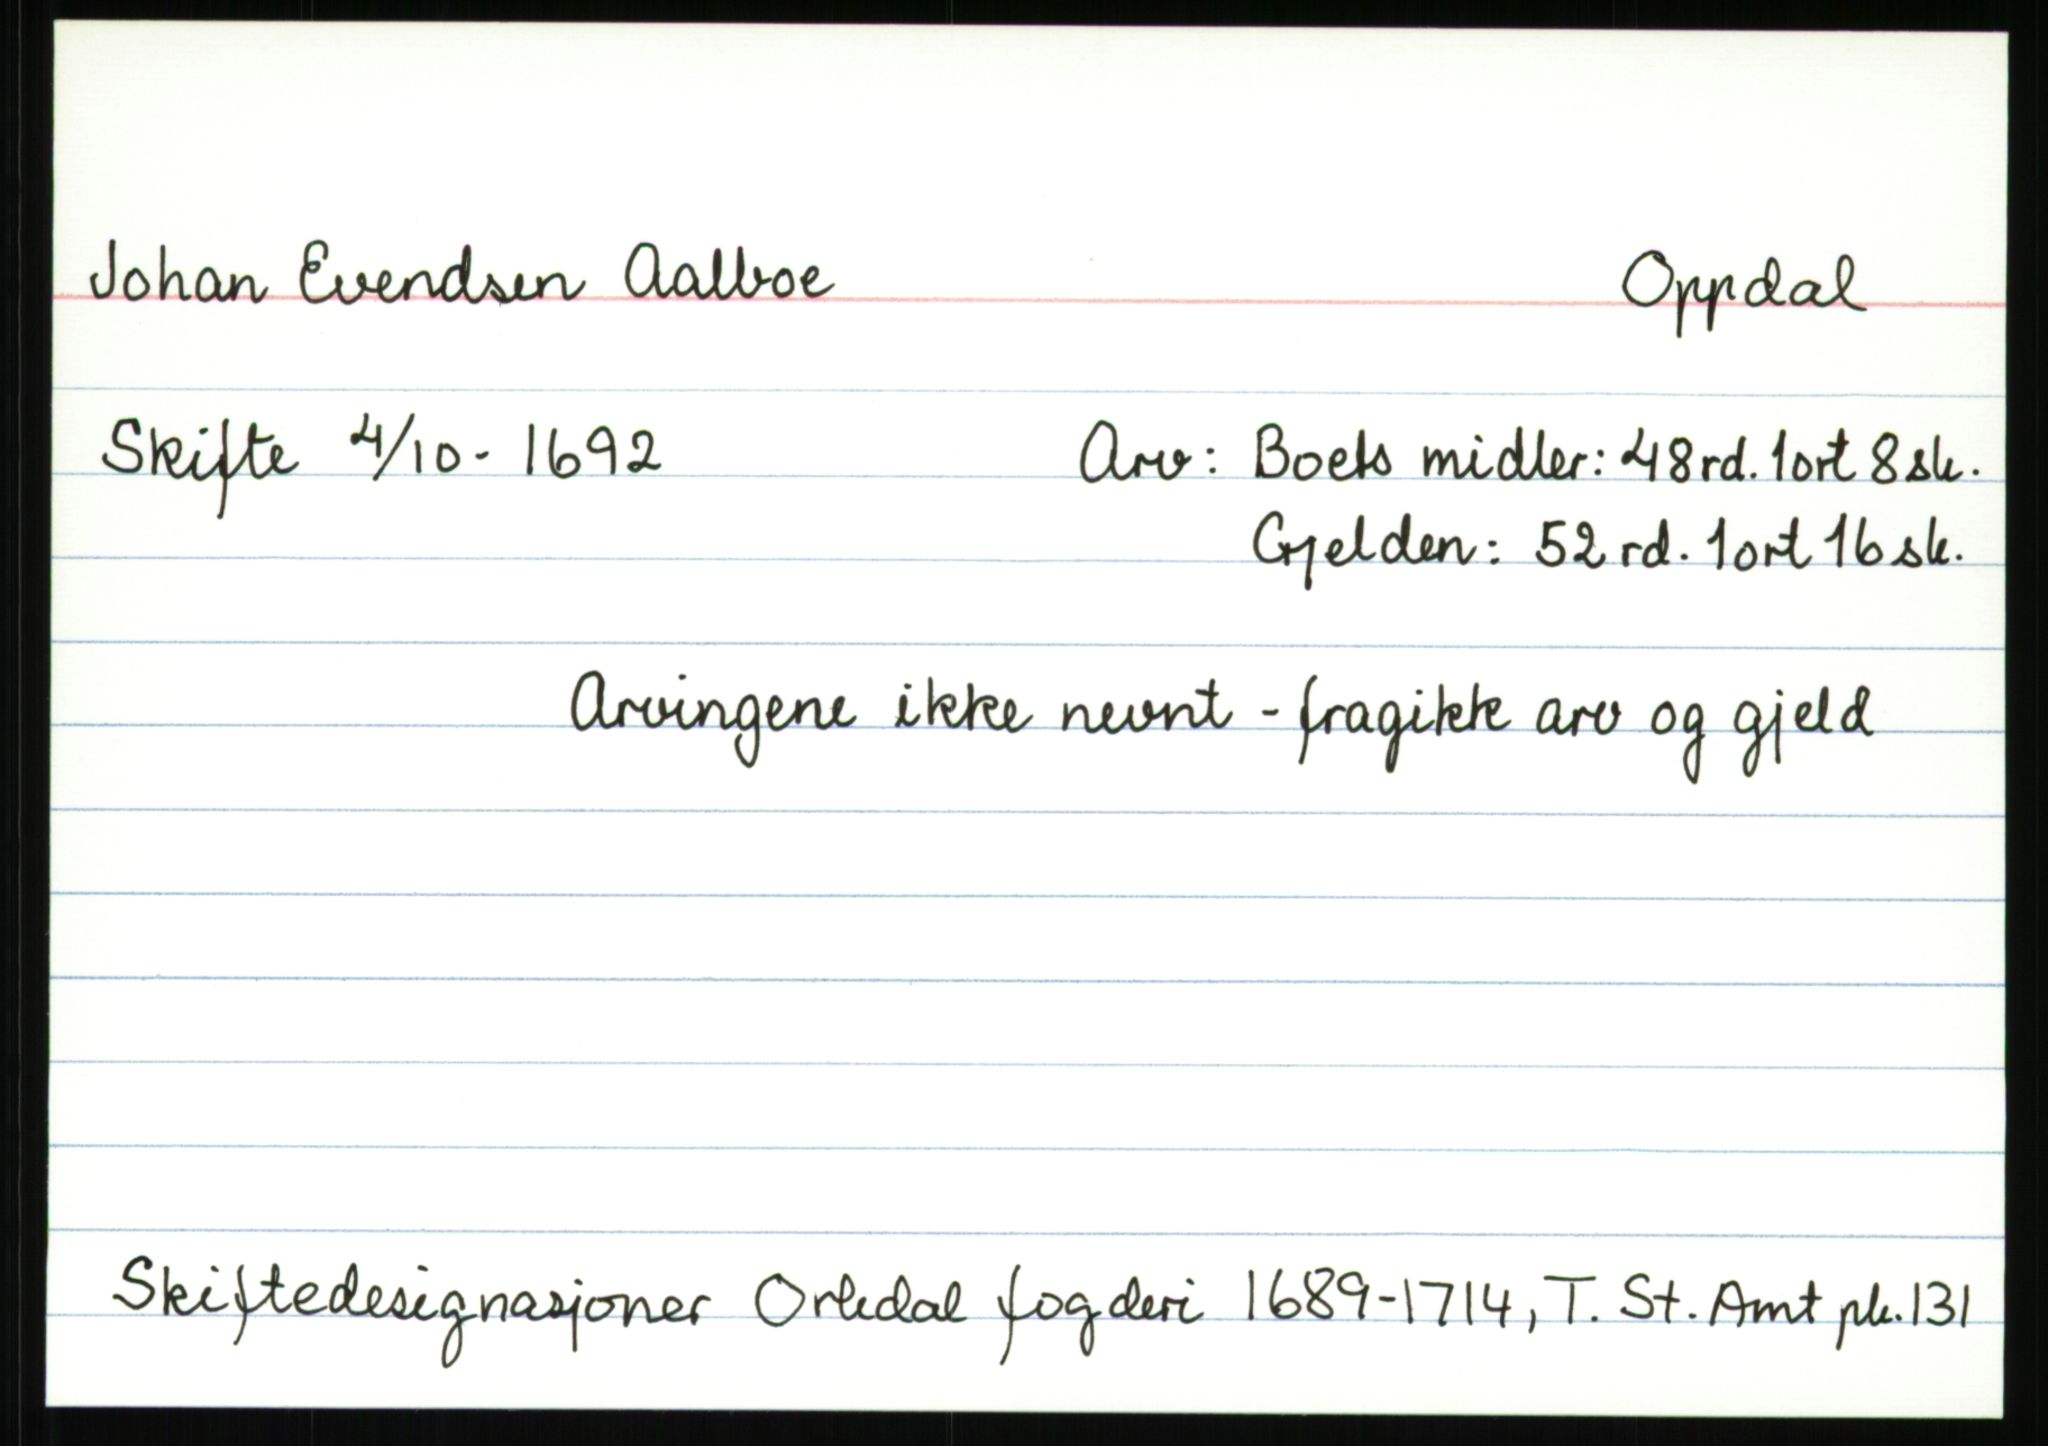 Johan Evendsen Aalboe Oppdal
Skifte 4/10- 1692 Arv: Boets midler: 48 rd. 1 ort 8 sk.
Gjelden: 52 rd. 1 ort 16 sk.
Arvingene ikke nevnt - fragikk arv og gjeld
Skiftedesignasjoner Orkdal fogderi 1689-1714, T. St. Amt pk. 131